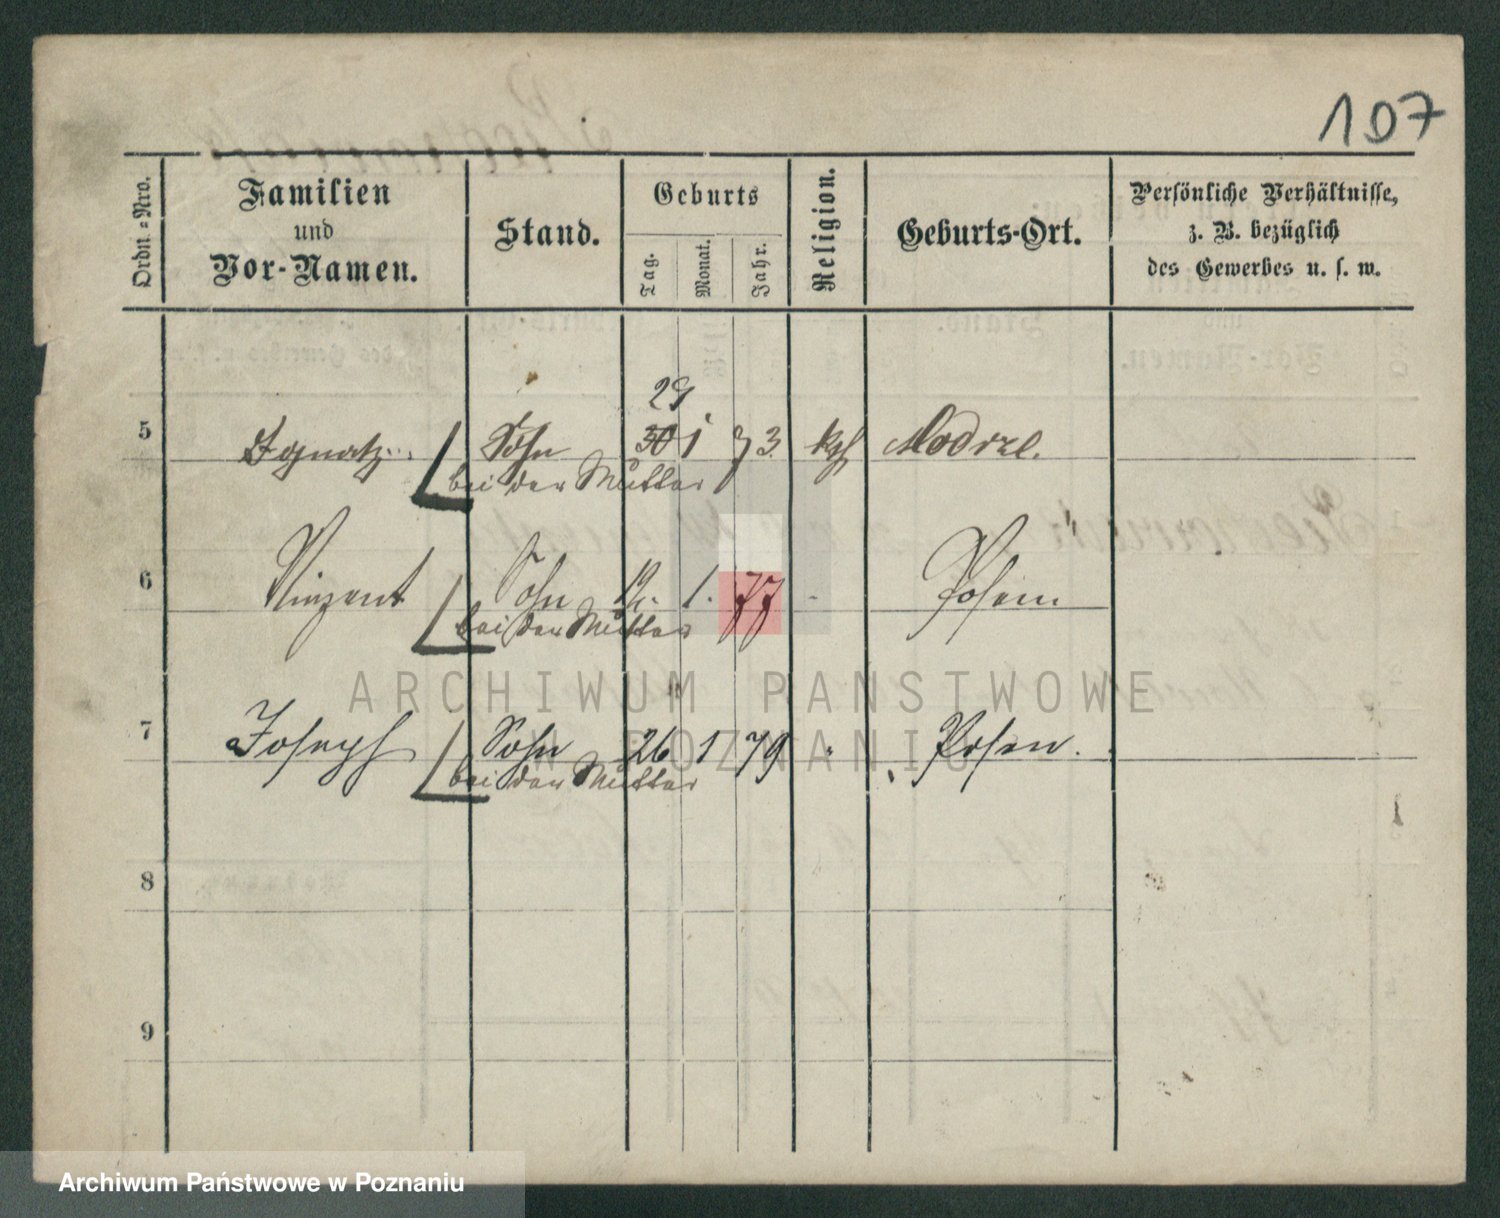 107
Ordn.-Nro.
Familien
und
Vor-Namen.
Stand.
Geburts
Tag.
Monat.
Jahr.
Religion.
Geburts-Ort.
Persönliche Verhältnisse,
z. B. bezüglich
des Gewerbes u. s. w.
29
5 Ignatz Sohn 30 1 73 kath
bei der Mutter
6 Vinzent Sohn 1. 77 Posen
bei der Mutter
ARCHIWUM PAŃSTWOWE
W POZNANIU
7 Joseph Sohn 26 1 79 " Posen.
bei der Mutter
8
9
Archiwum Państwowe w Poznaniu